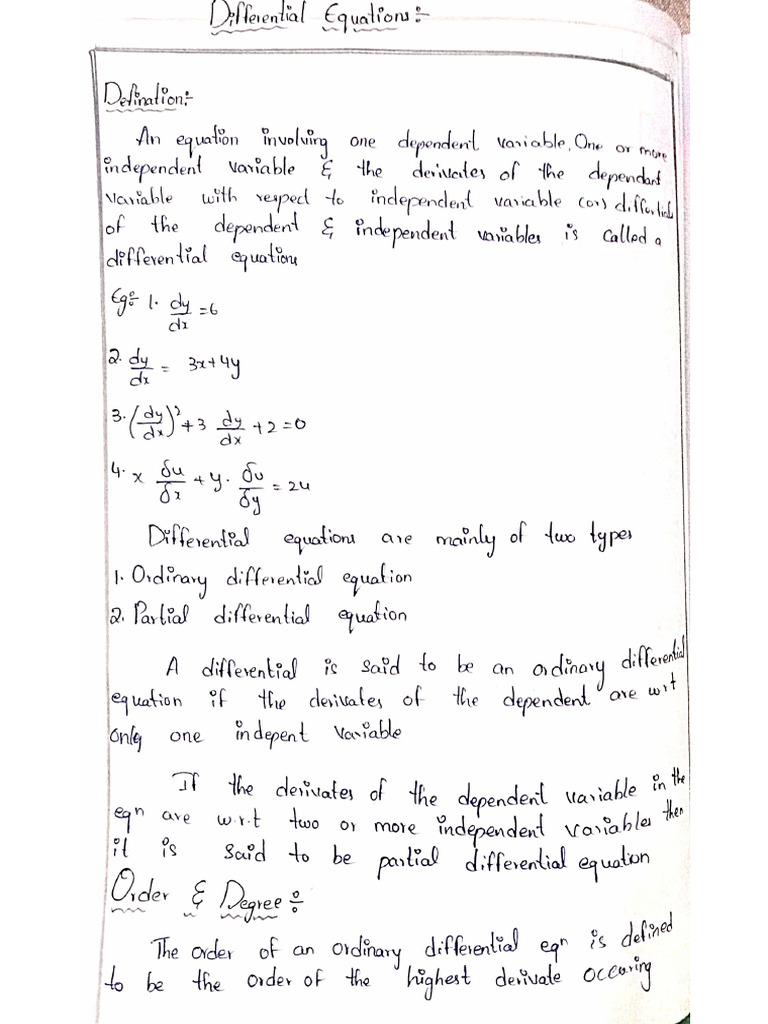 Differential Equations :-
Defination:-
An equation involving one dependent variable, One or more
independent variable & the derivates of the dependant
variable with respect to independent variable (or) differtial
of the dependent & independent variables is called a
differential equations
Eg:- 1. dy/dx = 6
2. dy/dx = 3x+4y
3. (dy/dx)² + 3 dy/dx + 2 = 0
4. x δu/δx + y. δu/δy = 2u
Differential equations are mainly of two types
1. Ordinary differential equation
2. Partial differential equation
A differential is said to be an ordinary differential
equation if the derivates of the dependent are wrt
only one indepent variable
If the derivates of the dependent variable in the
eqn are w.r.t two or more independent variables then
it is said to be partial differential equation
Order & Degree :-
The order of an ordinary differential eqn is defined
to be the order of the highest derivate occuring